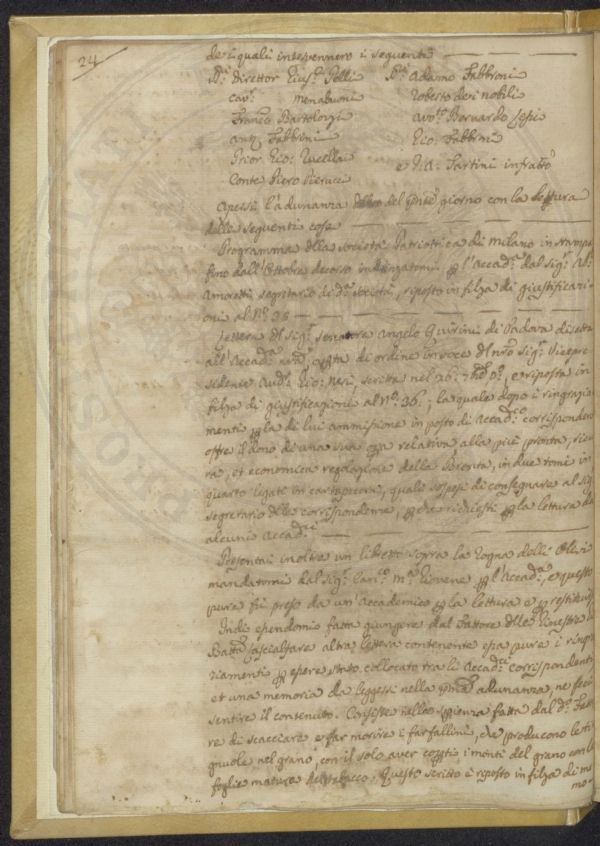 24
de i quali intervennero i seguenti
Sig. Direttor Gius. Pelli Sig. Adamo Fabbroni
Cav. Menabuoni Roberto de i nobili
Franco Bartolozzi Avv. Bernardo Lessi
Ant. Fabbrini Gio: Fabbrini
Prior Gio: Lucella e Gia: Sartini infratto
Conte Piero Pierucci
Apersi l'adunanza del pnte giorno con la lettura
delle seguenti cose
Programma della Società Patriottica di Milano in stampa
fino dall'Ottobre decorso indirizzatomi p l'Accad.a dal Sig. Ab.
Amoretti segretario di d.a Società, riposto in filza di giustificazi-
oni al N.o 35
Lettera del Sig. Senatore Angelo Quirini di Padova diretta
all'Accad.a di ordine in voce del nro Sig. Vicepre
sidente Aud.e Gio: Neri, scritta nel 26: , e riposta in
filza di giustificazioni al N.o 36, la quale dopo i ringrazia
menti p la di lui ammissione in posto di Accad.co corrispondente
offre il dono di una sua opa relativa alla più pronta, sicu
ra, et economica regolazione della Brenta, in due tomi in
quarto ligati in cartapecora, quali sospesi di consegnare al Sig.
segretario delle corrispondenze, p che richiesti p la lettura da
alcuni Accad.ci
Presentai inoltre un libretto sopra la rogna delli Olivi
mandatomi dal Sig. Can.co M.a Giovene p l'Accad.a, e questo
pure fù preso da un'Accademico p la lettura e p restituirsi
Indi essendomi fatta giungere dal Fattore delle Ginestre
Batta Casciattare altra lettera contenente essa pure i ringra
ziamenti p essere stato collocato tra li Accad.ci corrispondenti
et una memoria da leggersi nella pnte adunanza, ne feci
sentire il contenuto. Consiste nella sperienza fatta dal d.o Fatto
re di scacciare, e far morire i farfallini, che producono le ti
gnuole nel grano, con il solo aver coperti i monti del grano con le
foglie mature del tabacco. Questo scritto è riposto in filza di me
mo-